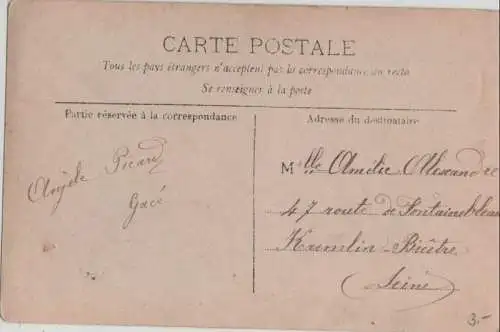 CARTE POSTALE
Tous les pays étrangers n'acceptent pas la correspondance au recto
Se renseigner à la poste
Partie réservée à la correspondance
Adresse du destinataire
Angèle Picard
Gacé
Mlle Amélie Alexandre
47 route de Fontainebleau
Kremlin-Bicêtre
(Seine)
3.-